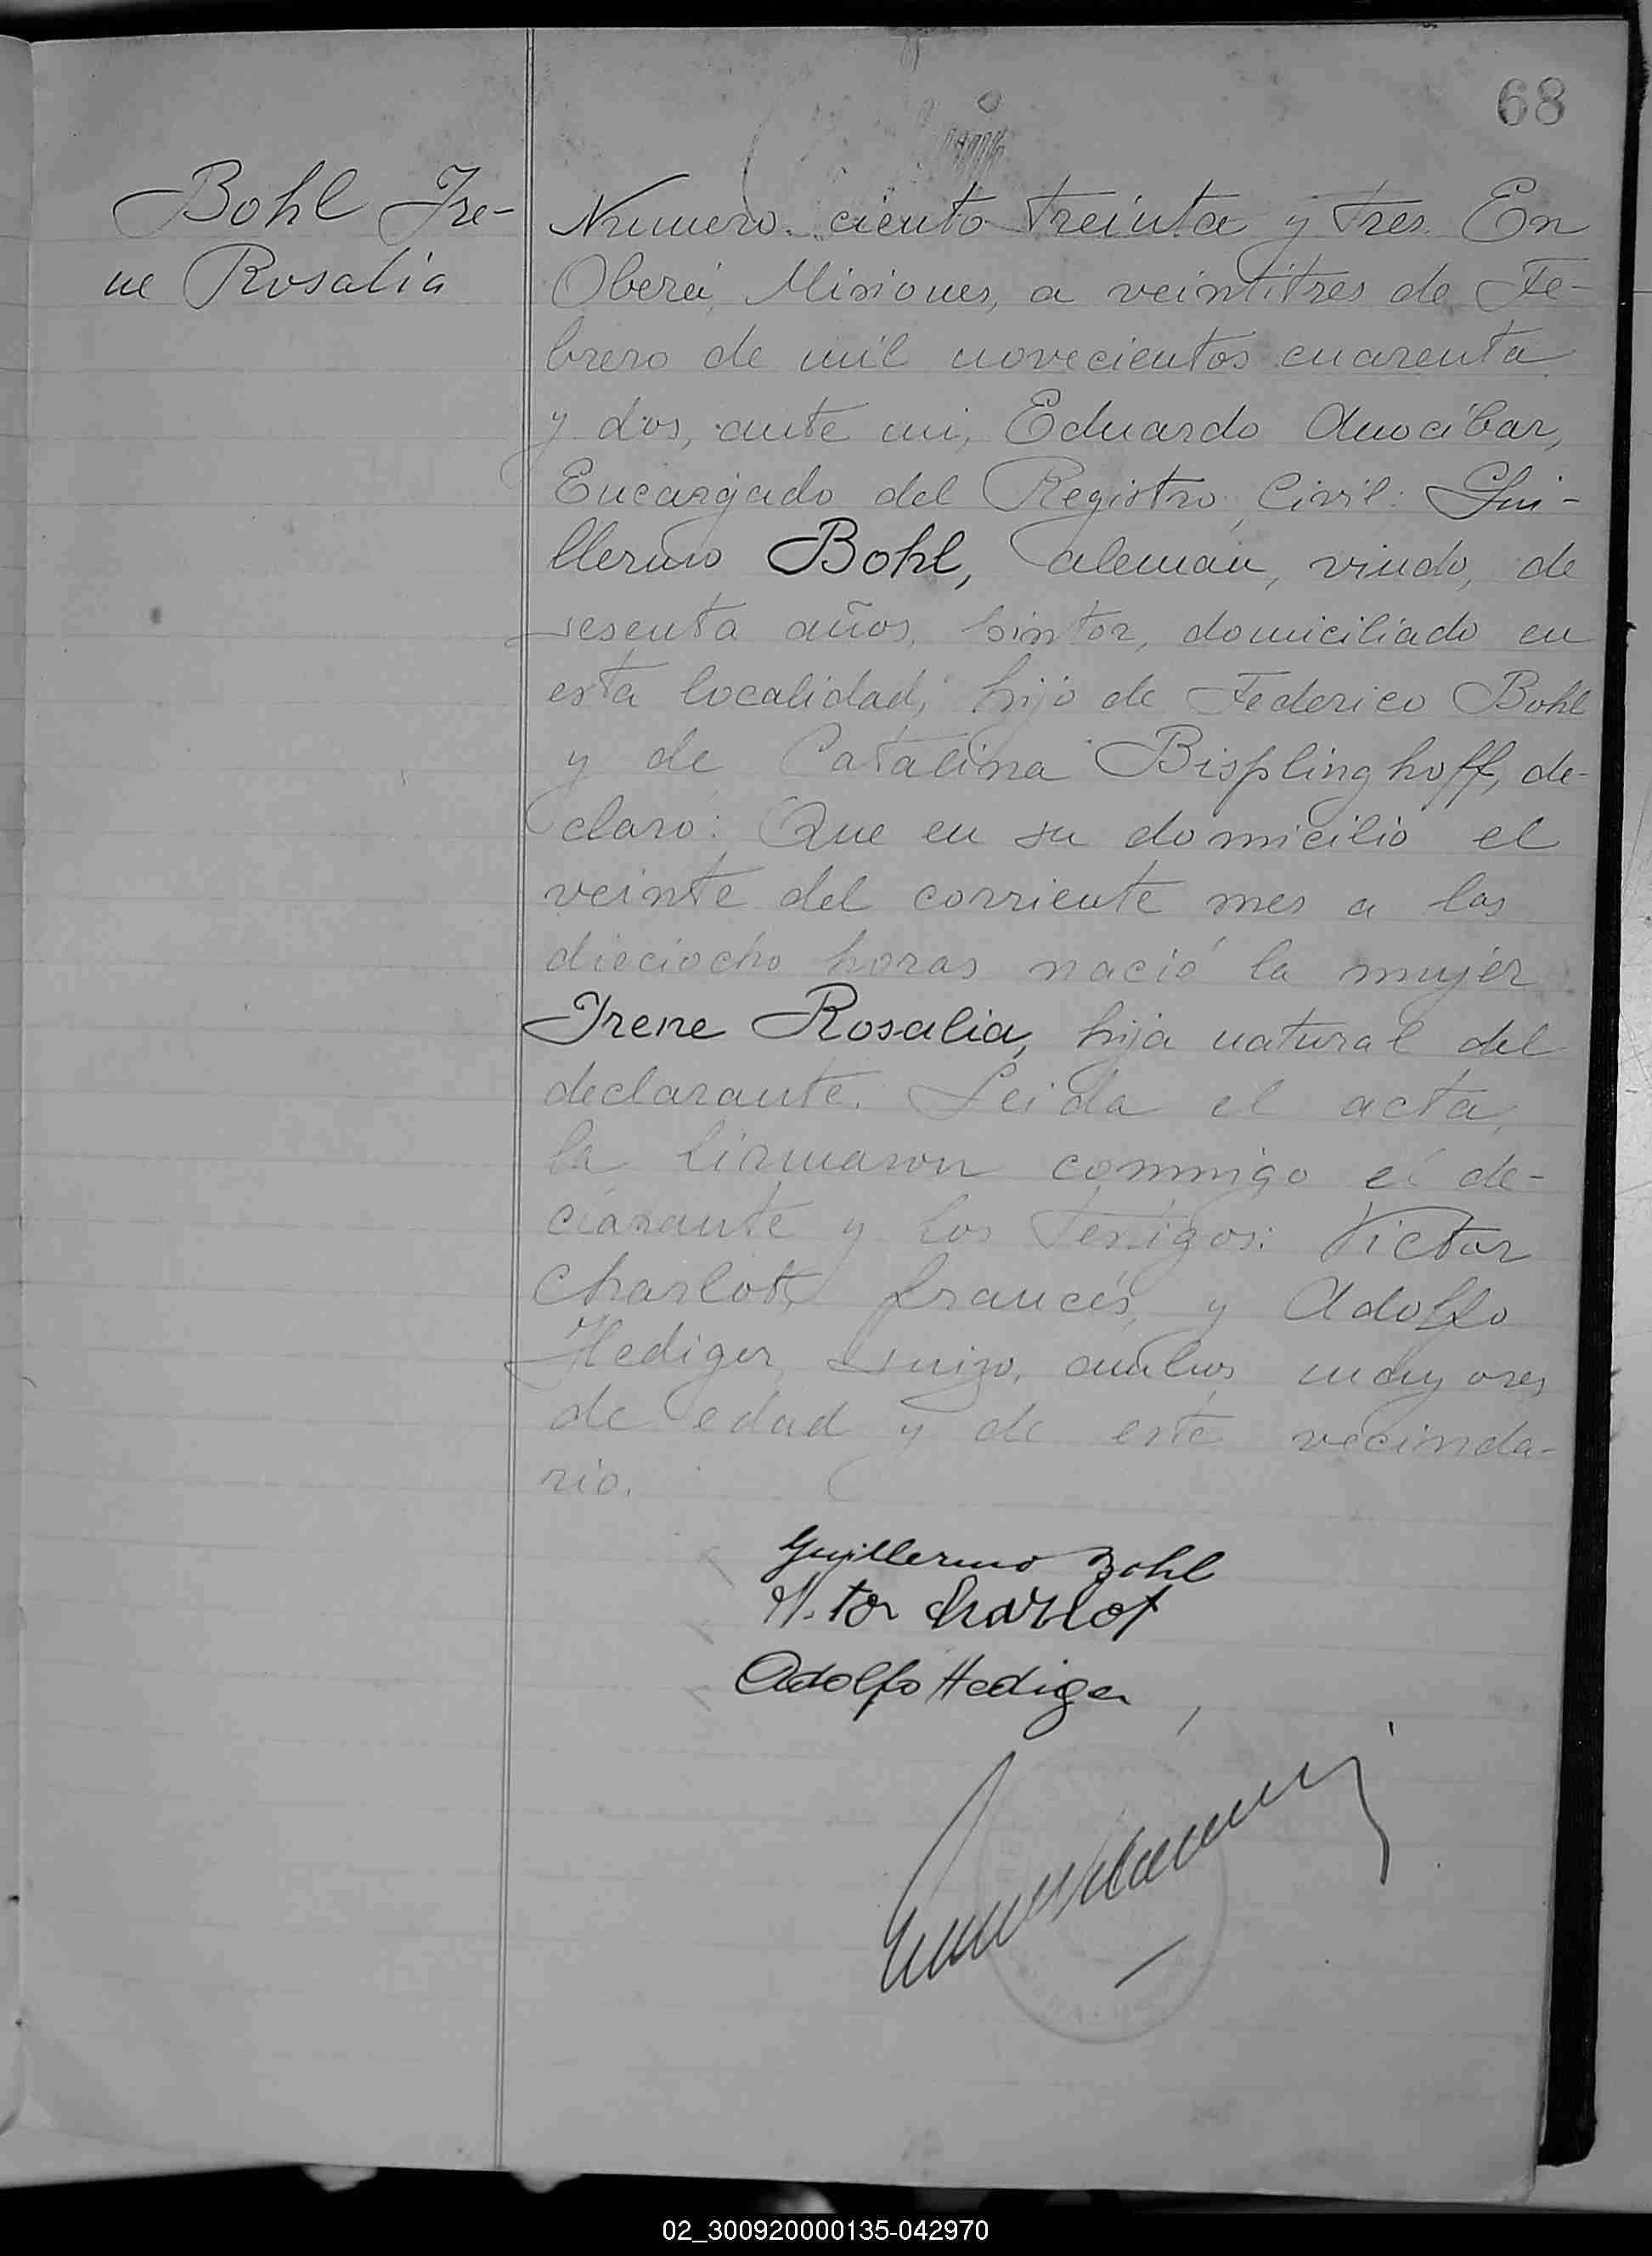 68
Bohl Ire-
ne Rosalia
Numero ciento treinta y tres. En
Oberá, Misiones, a veintitres de Fe-
brero de mil novecientos cuarenta
y dos, ante mi, Eduardo Anocibar,
Encargado del Registro Civil: Gui-
llermo Bohl, alemán, viudo, de
sesenta años, pintor, domiciliado en
esta localidad, hijo de Federico Bohl
y de Catalina Bisplinghoff, de-
claró: Que en su domicilio el
veinte del corriente mes a las
dieciocho horas nació la mujer
Irene Rosalia, hija natural del
declarante. Leida el acta,
la firmaron conmigo el de-
clarante y los testigos: Victor
Charlot, francés, y Adolfo
Hediger, suizo, ambos mayores
de edad y de este vecinda-
rio.
Guillermo Bohl
Charlot
Adolfo Hediger
02_300920000135-042970